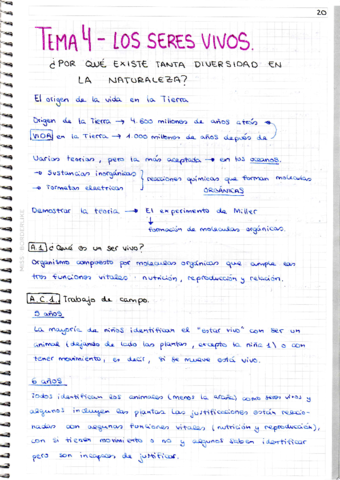 20
TEMA 4 - LOS SERES VIVOS.
¿POR QUÉ EXISTE TANTA DIVERSIDAD EN
LA NATURALEZA?
El origen de la vida en la Tierra
Origen de la Tierra → 4.600 millones de años atrás
VIDA en la Tierra → 1000 millones de años después de
Varias teorías, pero la más aceptada → en los océanos.
→ Sustancias inorgánicas
→ Tormetas electricas
reacciones químicas que forman moléculas
ORGÁNICAS
Demostrar la teoría → El experimento de Miller
↓
formación de moléculas orgánicas.
A.1 ¿Qué es un ser vivo?
Organismo compuesto por moléculas orgánicas que cumple las
tres funciones vitales: nutrición, reproducción y relación.
A.C.1 Trabajo de campo.
5 años
La mayoría de niños identifican el "estar vivo" con ser un
animal (dejando de lado las plantas, excepto la niña 1) o con
tener movimiento, es decir, si se mueve está vivo.
6 años
Todos identifican los animales (menos la araña) como seres vivos y
algunos incluyen las plantas. Las justificaciones están relacio-
nadas con algunas funciones vitales (nutrición y reproducción),
con si tienen movimiento o no y algunos saben identificar
pero son incapaces de justificar.